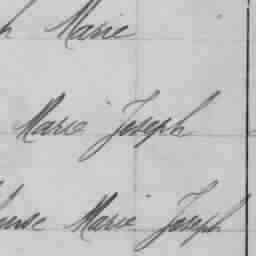 h Marie
Marie Joseph
Marie Joseph